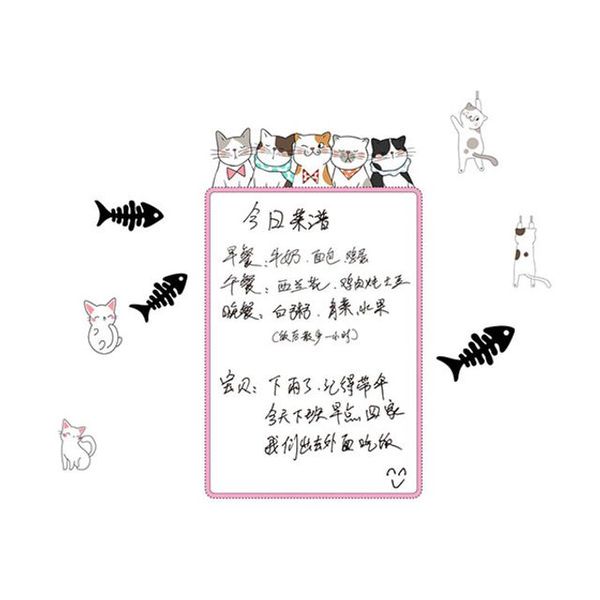 今日菜谱
早餐:牛奶.面包.鸡蛋
午餐:西兰花,鸡肉炖土豆
晚餐:白粥.青菜,水果
(饭后散步一小时)
宝贝:下雨了,记得带伞
今天下班早点回家
我们出去外面吃饭